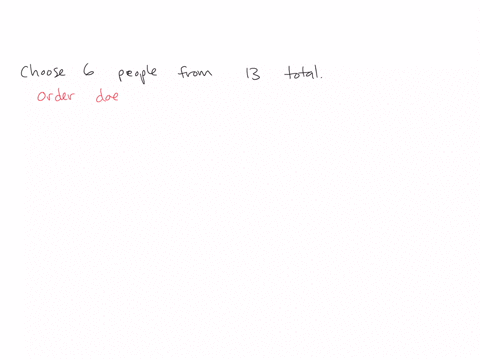 Choose 6 people from 13 total.
order doe